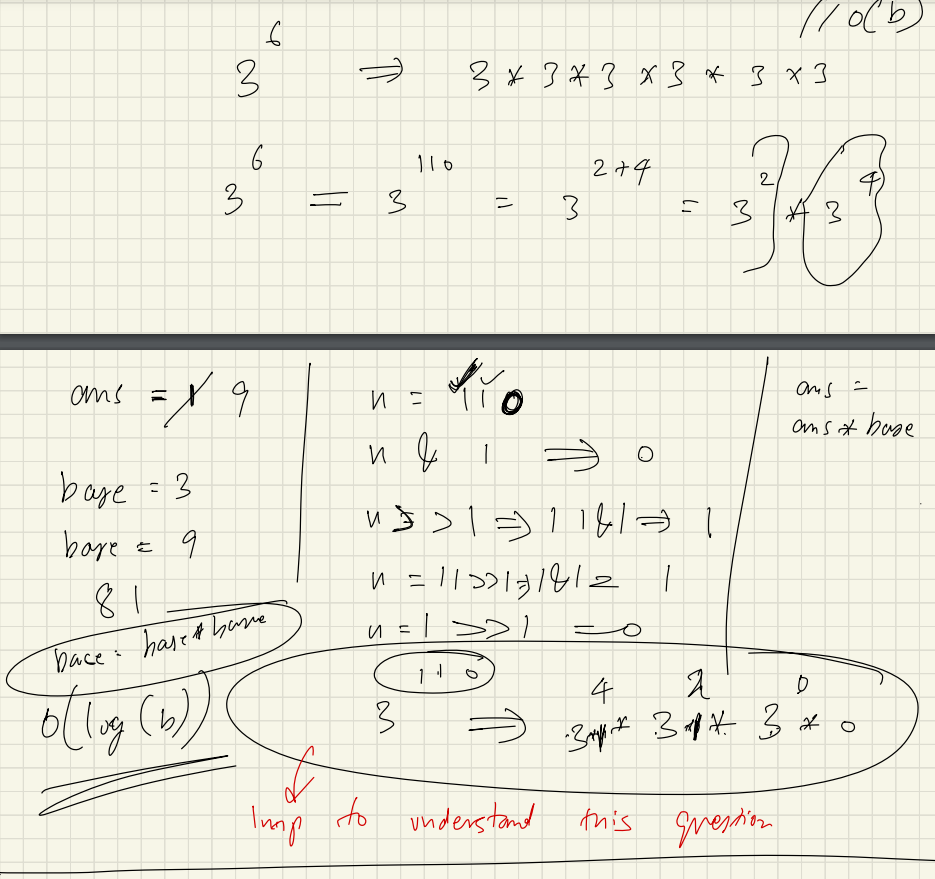 // O(b)
3^6 ⇒ 3 * 3 * 3 * 3 * 3 * 3
3^6 = 3^110 = 3^2+4 = 3^2 * 3^4
ans = 1 9
base = 3
base = 9
81
base = base * base
O(log(b))
n = 110
n & 1 ⇒ 0
n >> 1 ⇒ 11 & 1 ⇒ 1
n = 11 >> 1 ⇒ 1 & 1 = 1
n = 1 >> 1 = 0
ans =
ans * base
3^110 ⇒ 3^4 * 3^2 * 3^0 * 0
Imp to understand this question